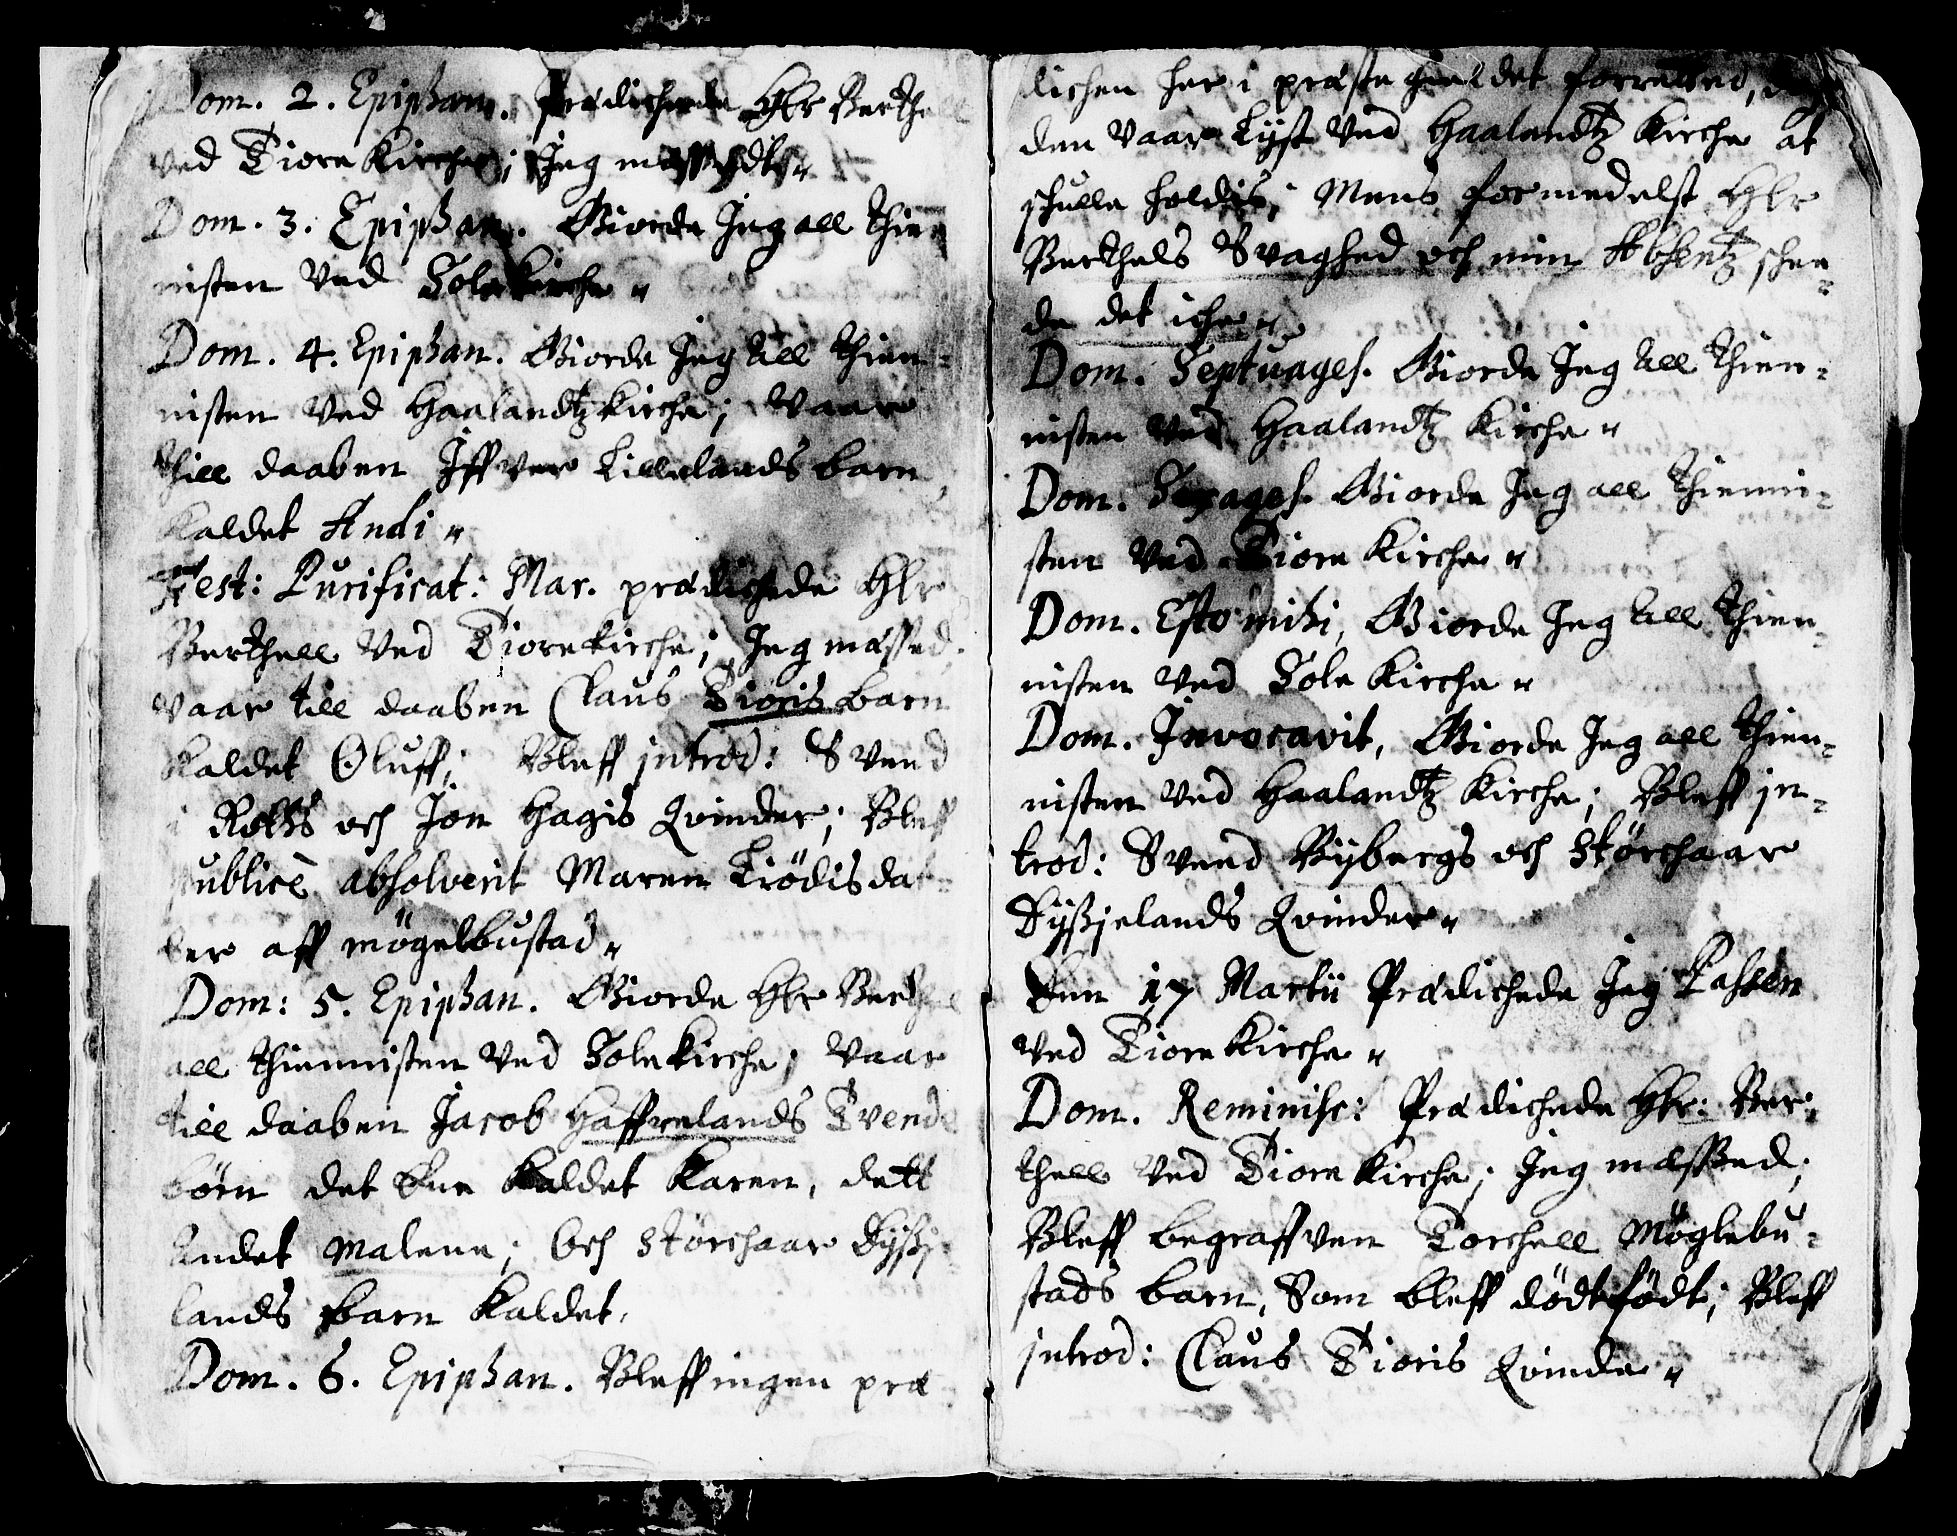 Dom. 2. Epiphan. Prædichede Hlr Berthell
ved Tiore Kirche; Jeg messedt„
Dom. 3. Epiphan. Giorde Jeg all thien
nisten ved Sole kirche„
Dom. 4. Epiphan. Giorde Jeg All thien-
nisten ved Haalandtz kirche; Vaar
thill daaben Iffver Lillelands barn,
kaldet Andi„
Fest: Purificat: Mar. prædichede Hlr
Berthell ved Tiore kirche; Jeg messed.
vaar till daaben Claus Tioris barn
kaldet Oluff; Bleff introd: Svend
i Rotts och Jon Hagis Qvinder; Bleff
publicè absolverit Maren Tiödisdat-
ter aff Mögelbustad„
Dom: 5. Epiphan. Giorde Hlr Berthell
all thiennisten ved Sole kirche; Vaar
till daaben Jacob Haffrelands Tvende
börn det Ene kaldet Karen, dett
Andet Malene; Och Störchaar Dÿßje-
lands barn kaldet.
Dom. 6. Epiphan. Bleff ingen præ-
dichen her i præste gieldet forretted,
den vaar Lÿst ved Haalandtz Kirche at
schulle holdis; Mens formedelst Hlr
Berthels Svaghed och min Absentz schee-
de det iche„
Dom. Septuages. Giorde Jeg All thien-
nisten ved Haalandtz Kirche„
Dom. Sexages. Giorde Jeg all thienni-
sten ved Tiore Kirche„
Dom. Esto mihi, Giorde Jeg All thien-
nisten ved Sole Kirche„
Dom. Invocavit, Giorde Jeg all thien-
nisten ved Haalandtz Kirche; Bleff in-
trod: Svend Rÿbergs och Störchaar
Dÿßjelands Qvinder„
Den 17 Martii Prædichede Jeg Passen
ved Tiore Kirche„
Dom. Reminisc: Prædichede Hlr: Ber-
thell ved Tiore Kirche; Jeg mesßed;
Bleff begraffven Torchell Möglebu-
stads barn, Som bleff dödt födt; Bleff
introd: Claus Tioris Qvinde„